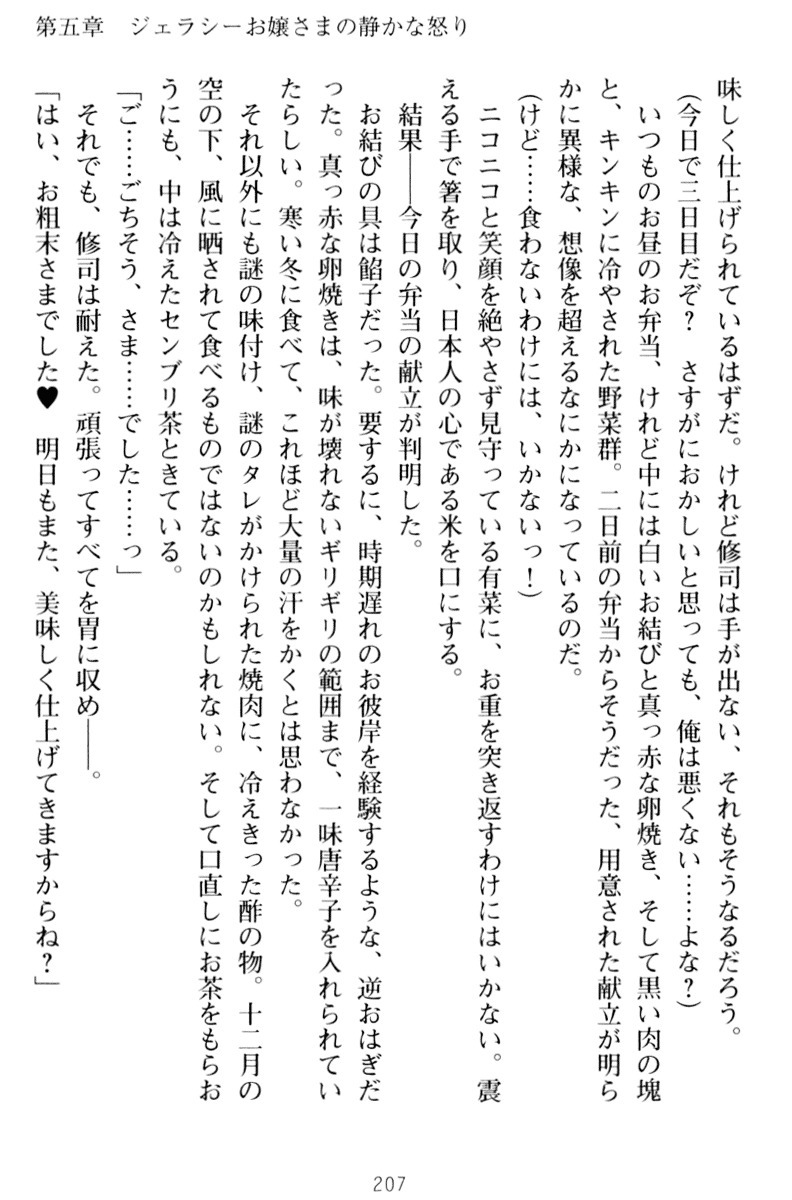 第五章　ジェラシーお嬢さまの静かな怒り
味しく仕上げられているはずだ。けれど修司は手が出ない、それもそうなるだろう。
（今日で三日目だぞ？　さすがにおかしいと思っても、俺は悪くない……よな？）
　いつものお昼のお弁当、けれど中には白いお結びと真っ赤な卵焼き、そして黒い肉の塊
と、キンキンに冷やされた野菜群。二日前の弁当からそうだった、用意された献立が明ら
かに異様な、想像を超えるなにかになっているのだ。
（けど……食わないわけには、いかないっ！）
　ニコニコと笑顔を絶やさず見守っている有菜に、お重を突き返すわけにはいかない。震
える手で箸を取り、日本人の心である米を口にする。
　結果――今日の弁当の献立が判明した。
　お結びの具は餡子だった。要するに、時期遅れのお彼岸を経験するような、逆おはぎだ
った。真っ赤な卵焼きは、味が壊れないギリギリの範囲まで、一味唐辛子を入れられてい
たらしい。寒い冬に食べて、これほど大量の汗をかくとは思わなかった。
　それ以外にも謎の味付け、謎のタレがかけられた焼肉に、冷えきった酢の物。十二月の
空の下、風に晒されて食べるものではないのかもしれない。そして口直しにお茶をもらお
うにも、中は冷えたセンブリ茶ときている。
「ご……ごちそう、さま……でした……っ」
　それでも、修司は耐えた。頑張ってすべてを胃に収め――。
「はい、お粗末さまでした♥　明日もまた、美味しく仕上げてきますからね？」
207